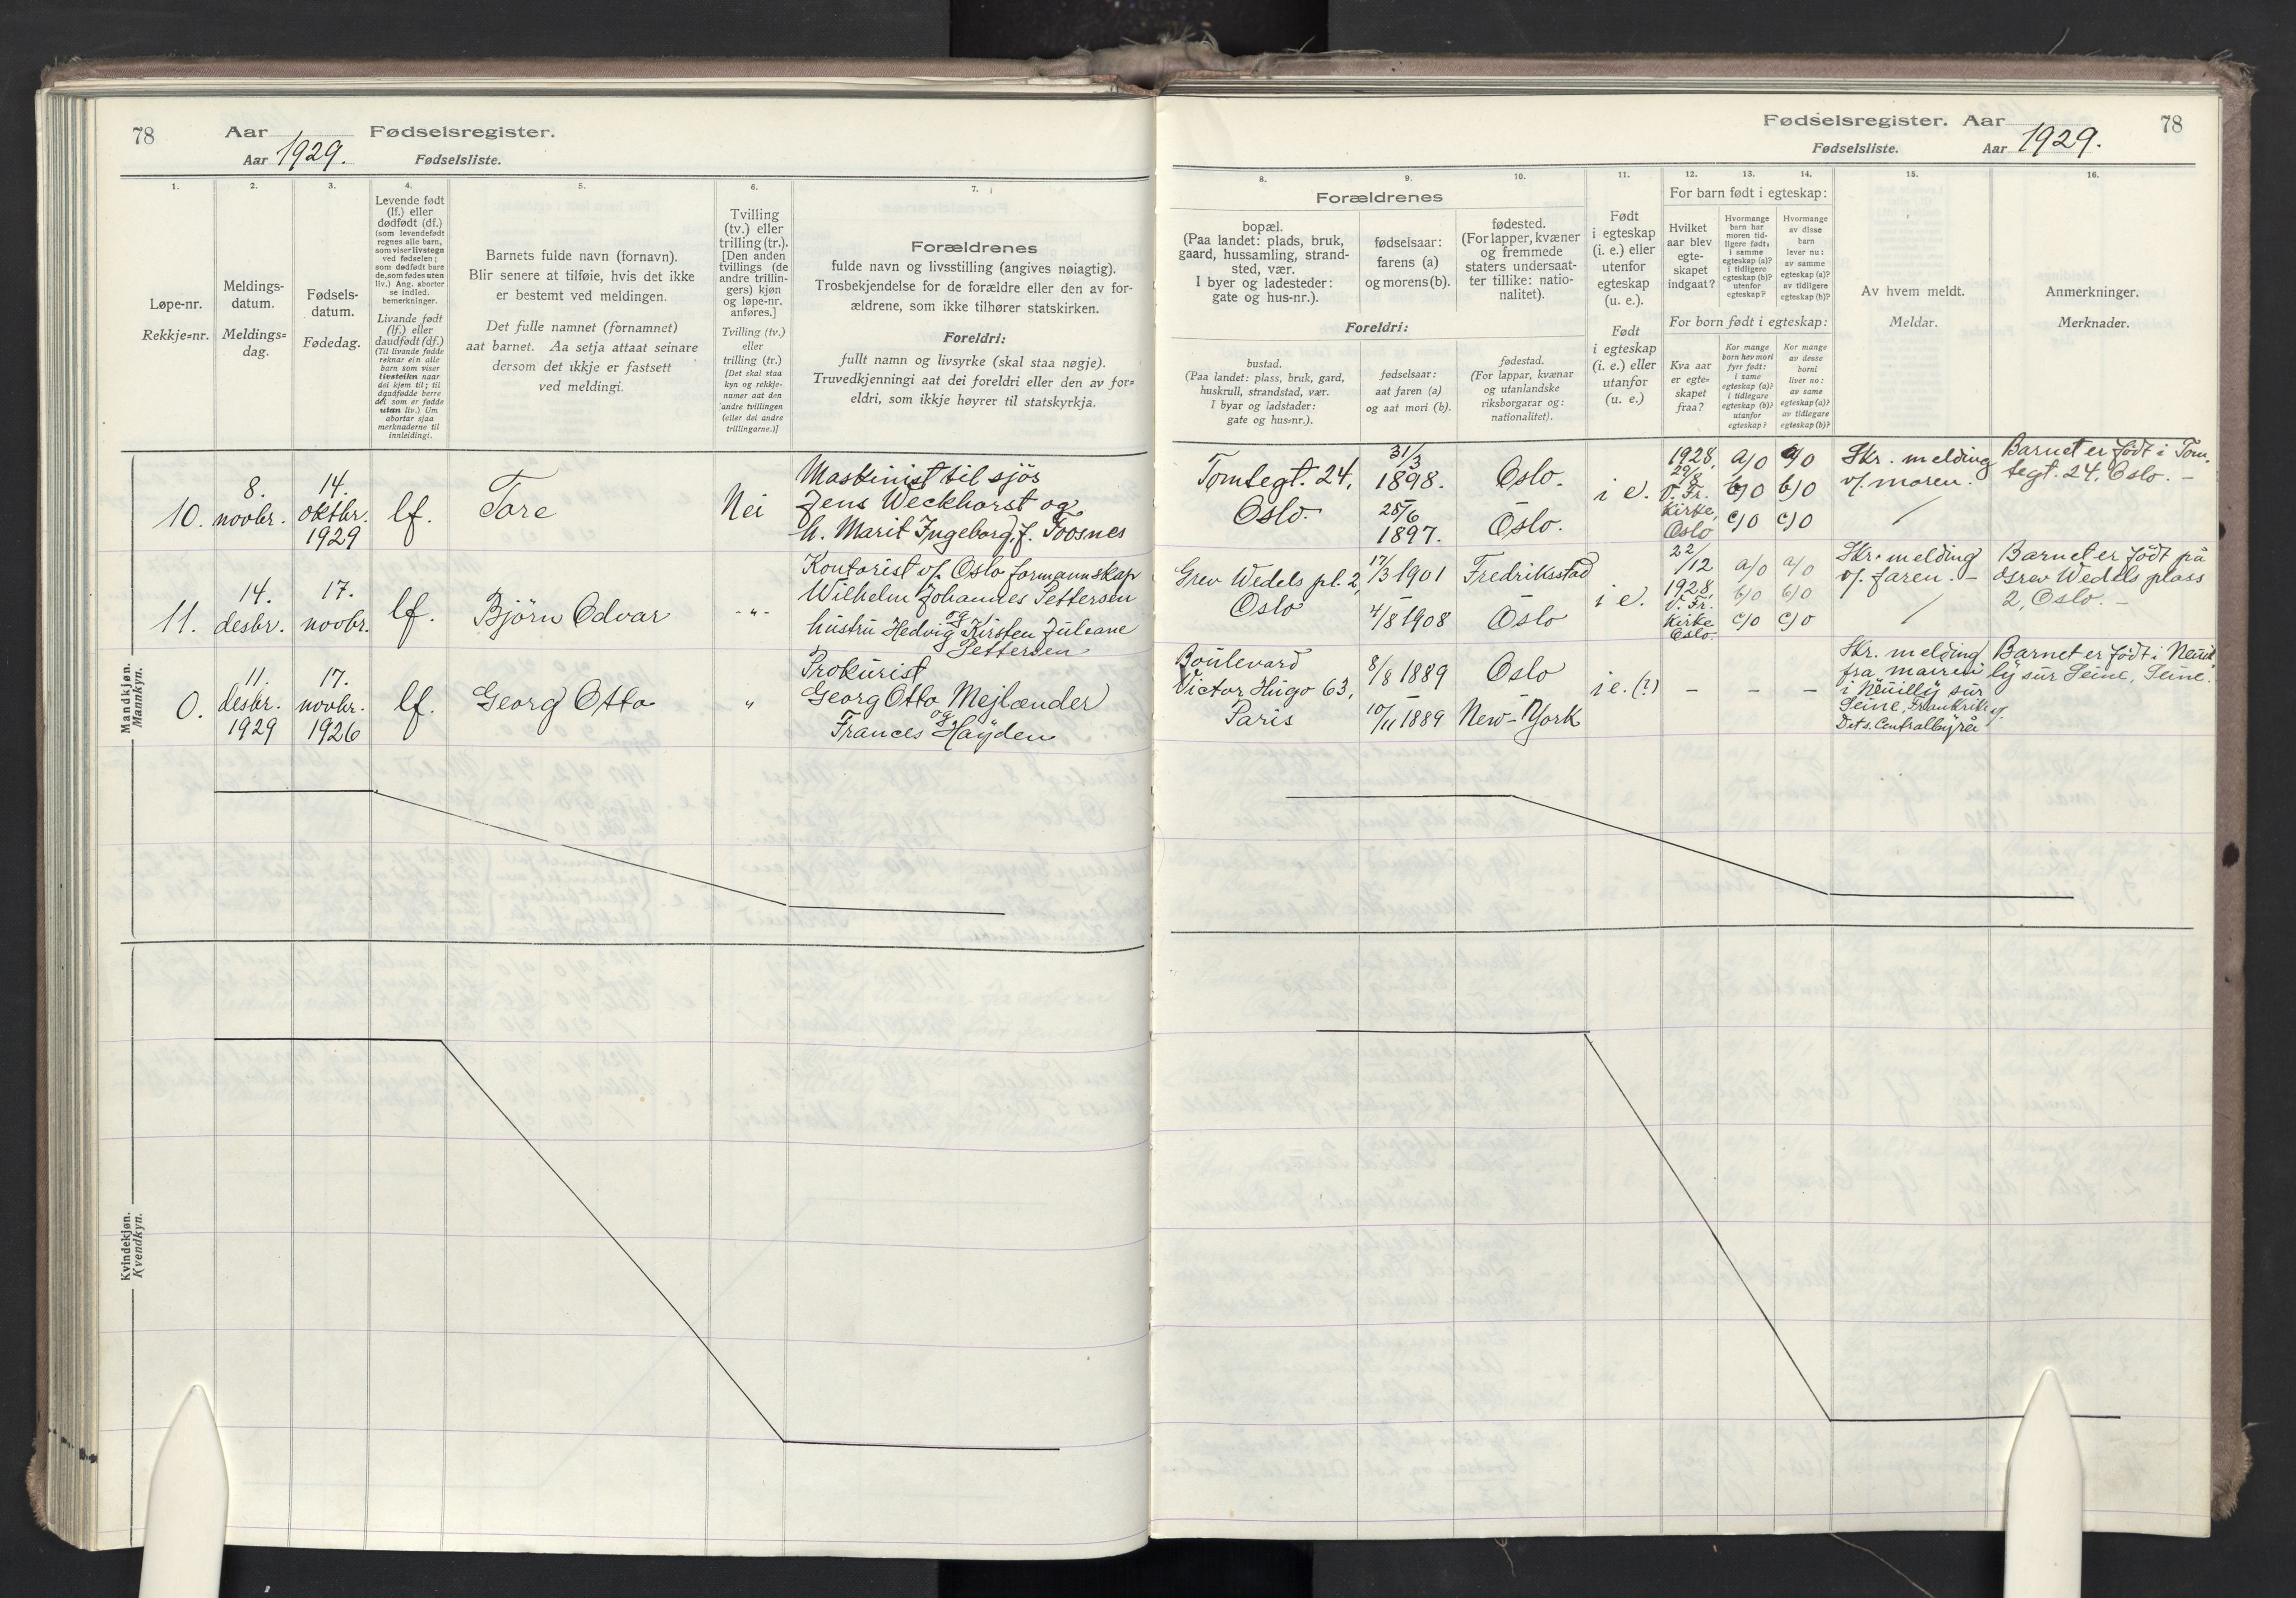 78
Aar
Fødselsregister.
Aar 1929.
Fødselsliste.
1.
2.
3.
4.
5.
6.
7.
Løpe-nr.
Rekkje=nr.
Meldings-
datum.
Meldings=
dag.
Fødsels-
datum.
Fødedag.
Levende født
(lf.) eller
dødfødt (df.)
(som levendefødt
regnes alle barn,
som viser livstegn
ved fødselen;
som dødfødt bare
de, som fødes uten
liv.) Ang. aborter
se indled.
bemerkninger.
Livande født
(lf.) eller
daudfødt (df.)
(Til livande fødde
reknar ein alle
barn som viser
livsteikn naar
dei kjem til; til
daudfødde berre
dei som er fødde
utan liv.) Um
abortar sjaa
merknaderne til
innleidingi.
Barnets fulde navn (fornavn).
Blir senere at tilføie, hvis det ikke
er bestemt ved meldingen.
Det fulle namnet (fornamnet)
aat barnet. Aa setja attaat seinare
dersom det ikkje er fastsett
ved meldingi.
Tvilling
(tv.) eller
trilling (tr.).
[Den anden
tvillings (de
andre trillin-
gers) kjøn
og løpe-nr.
anføres.]
Tvilling (tv.)
eller
trilling (tr.)
[Det skal staa
kyn og rekkje-
numer aat den
andre tvillingen
(eller dei andre
trillingarne.)]
Forældrenes
fulde navn og livsstilling (angives nøiagtig).
Trosbekjendelse for de forældre eller den av for-
ældrene, som ikke tilhører statskirken.
Foreldri:
fullt namn og livsyrke (skal staa nøgje).
Truvedkjenningi aat dei foreldri eller den av for=
eldri, som ikkje høyrer til statskyrkja.
Mandkjøn.
Mannkyn.
10.
8.
novbr.
14.
oktbr.
1929
lf.
Tore
Nei
Maskinist til sjøs
Jens Weckhorst og
h. Marit Ingeborg, f. Foosnes
11.
14.
desbr.
17.
novbr.
lf.
Björn Odvar
-"-
Kontorist v/ Oslo formannskap
Wilhelm Johannes Pettersen
og
hustru Hedvig Kirsten Juliane
Pettersen
0.
11.
desbr.
1929
17.
novbr.
1926
lf.
Georg Otto
"
Prokurist
Georg Otto Mejlænder
og
Frances Hayden
Kvindekjøn.
Kvendkyn.
Fødselsregister. Aar
78
Fødselsliste.
Aar 1929.
8.
9.
10.
11.
12.
13.
14.
15.
16.
Forældrenes
bopæl.
(Paa landet: plads, bruk,
gaard, hussamling, strand-
sted, vær.
I byer og ladesteder:
gate og hus-nr.).
fødselsaar:
farens (a)
og morens (b).
fødested.
(For lapper, kvæner
og fremmede
staters undersaat-
ter tillike: natio-
nalitet).
Foreldri:
bustad.
(Paa landet: plass, bruk, gard,
huskrull, strandstad, vær.
I byar og ladstader:
gate og hus=nr.).
fødselsaar:
aat faren (a)
og aat mori (b).
fødestad.
(For lappar, kvænar
og utanlandske
riksborgarar og:
nationalitet).
Født
i egteskap
(i. e.) eller
utenfor
egteskap
(u. e.).
Født
i egteskap
(i. e.) eller
utanfor
(u. e.)
For barn født i egteskap:
Hvilket
aar blev
egte-
skapet
indgaat?
Hvormange
barn har
moren tid-
ligere født:
i samme
egteskap (a)?
i tidligere
egteskap (b)?
utenfor
egteskap?
Hvormange
av disse
barn
lever nu:
av samme
egteskap (a)?
av tidligere
egteskap (b)?
For born født i egteskap:
Kva aar
er egte=
skapet
fraa?
Kor mange
born hev mori
fyrr født:
i same
egteskap (a)?
i tidlegare
egteskap (b)?
utanfor
egteskap?
Kor mange
av desse
borni
liver no:
av same
egteskap (a)?
av tidlegare
egteskap (b)?
Av hvem meldt.
Meldar.
Anmerkninger.
Merknader.
Tomtegt. 24,
Oslo.
31/3
1898.
25/6
1897.
Oslo.
Oslo.
i e.
1928,
29/8
V. Fr.
kirke,
Oslo
a/0
b/0
c/0
a/0
b/0
c/0
Skr. melding
v/ moren.
Barnet er født i Tom-
tegt. 24, Oslo. -
Grev Wedels pl. 2,
Oslo
17/3 1901
4/8 1908
Fredriksstad
Oslo
i e.
22/12
1928,
V. Fr.
kirke
Oslo.
a/0
b/0
c/0
a/0
b/0
c/0
Skr. melding
v/ faren. -
Barnet er født på
Grev Wedels plass
2, Oslo. -
Boulevard
Victor Hugo 63,
Paris
8/8 1889
10/11 1889
Oslo
New-York
i e. (?)
-
-
-
Skr. melding
fra mairen i
i Neuilly sur
Seine, Frankrike
Det s. Centralbyrå
Barnet er født i Neuil-
ly sur Seine, Seine.